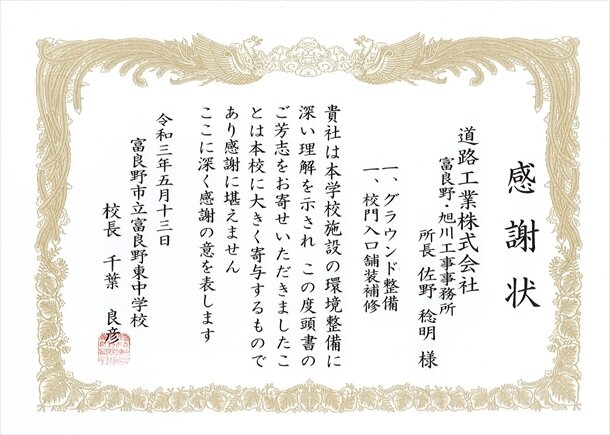 感謝状
道路工業株式会社
富良野・旭川工事事務所
所長 佐野 稔明 様
一、グラウンド整備
一、校門入口舗装補修
貴社は本学校施設の環境整備に
深い理解を示され この度頭書の
ご芳志をお寄せいただきましたこ
とは本校に大きく寄与するもので
あり感謝に堪えません
ここに深く感謝の意を表します
令和三年五月十三日
富良野市立富良野東中学校
校長 千葉 良彦